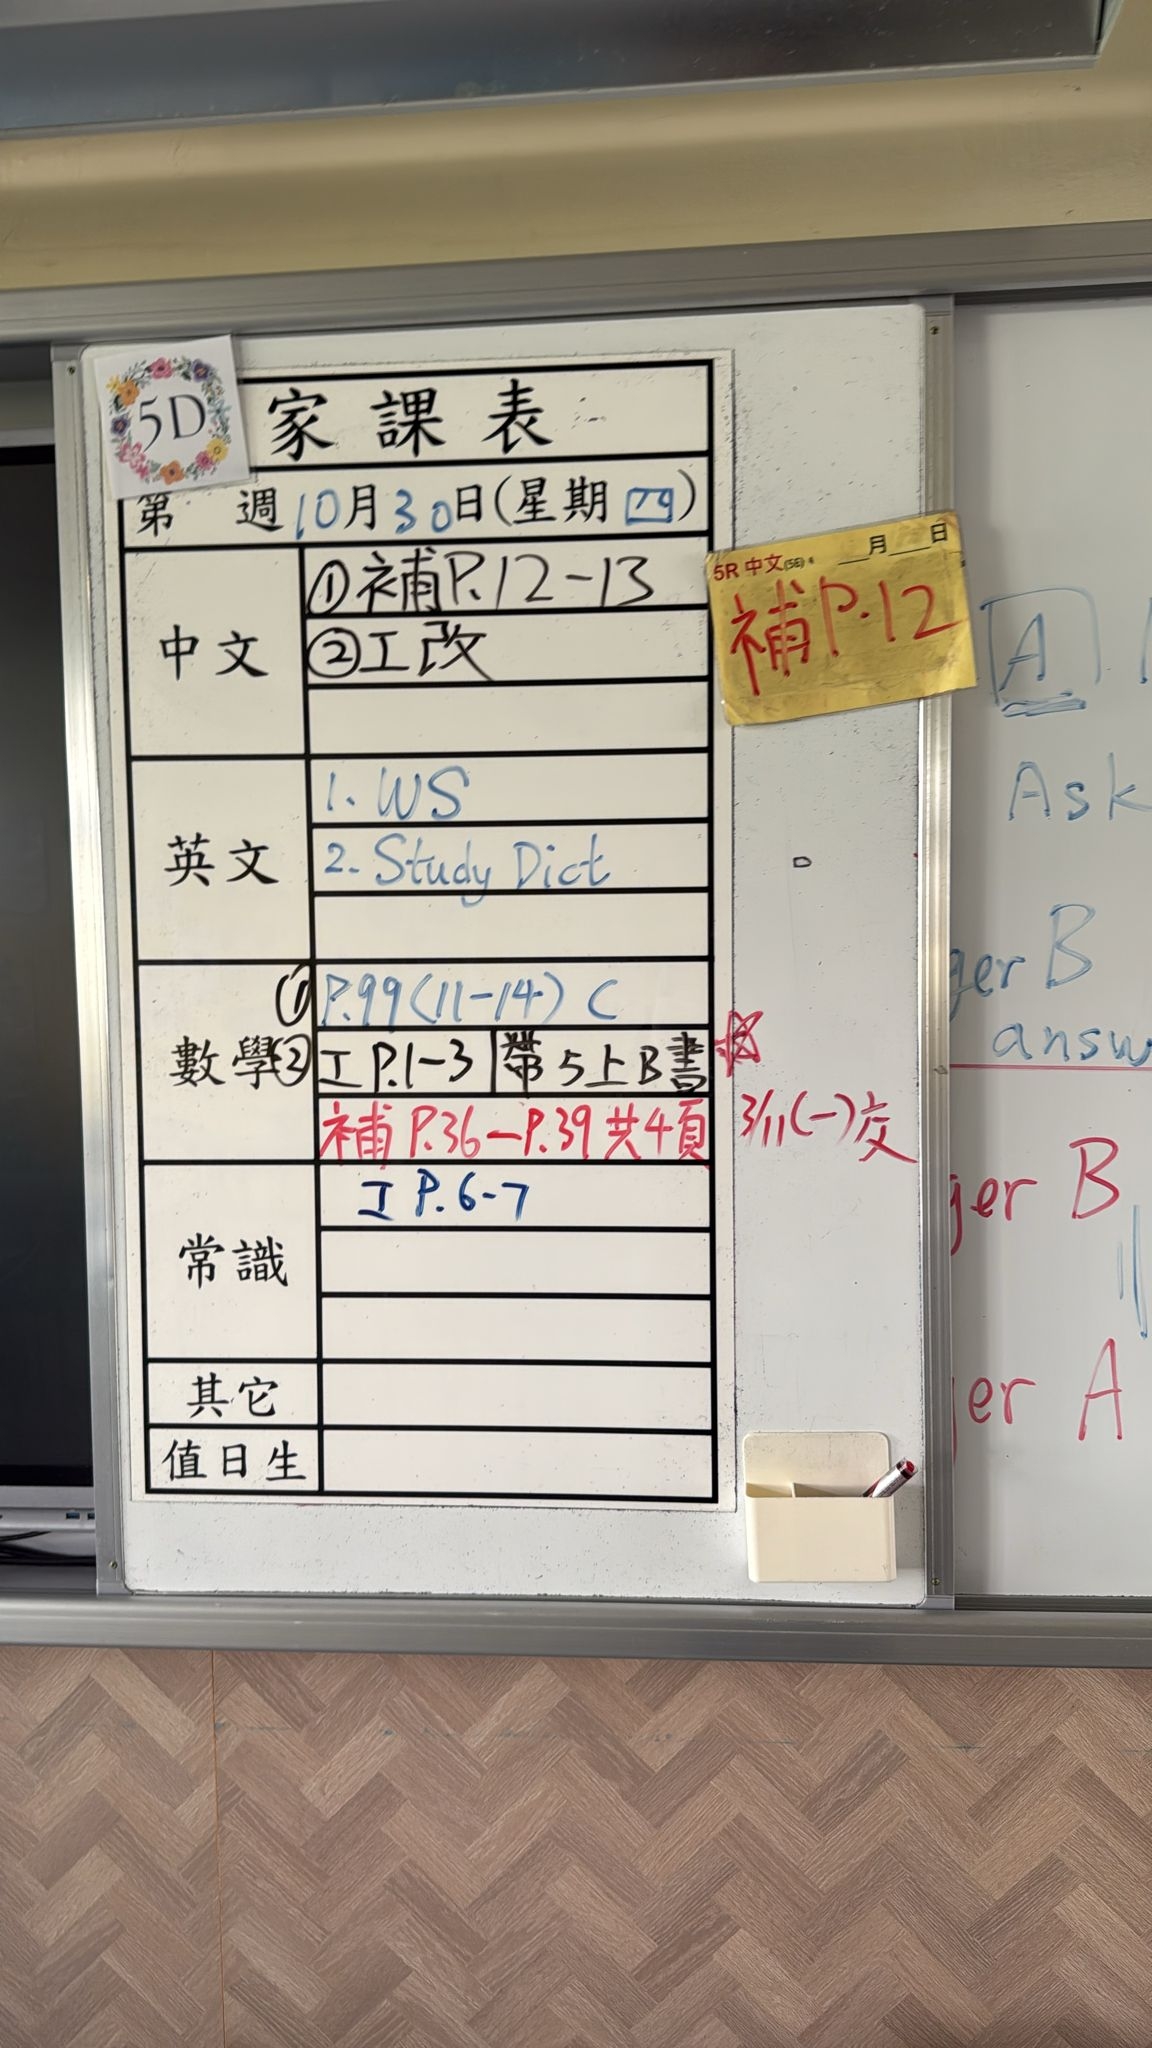 5D
家課表
第 週10月30日(星期四)
中文
①補P.12-13
②工改
5R 中文(5E) 4 __月__日
補P.12
英文
1. WS
2. Study Dict
數學
① P.99(11-14) C
② 工 P.1-3 | 帶5上B書
補 P.36-P.39 共4頁 3/11(一)交
常識
工 P.6-7
其它
值日生
A
Ask
ger B
answ
ger B
ger A